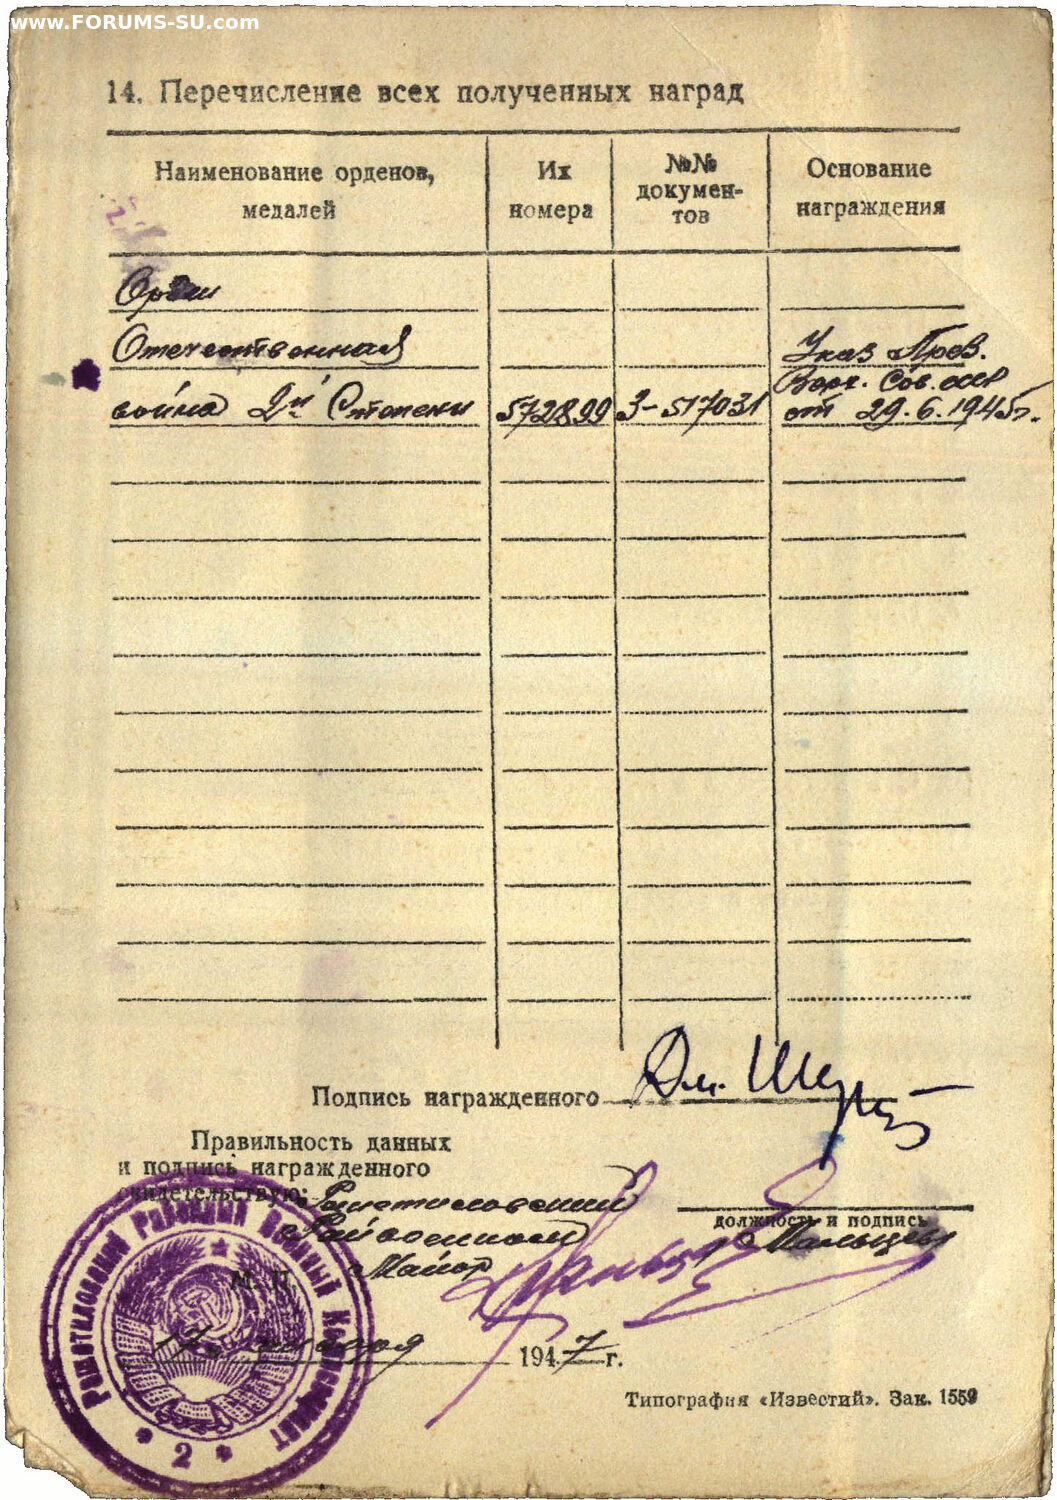 www.FORUMS-SU.com
14. Перечисление всех полученных наград
Наименование орденов, медалей
Их номера
№№ докумен-
тов
Основание награждения
Орден
Отечественная
война 2й Степени 572899 З-517031
Указ През.
Верх. Сов. ССР
от 29.6.1945г.
Подпись награжденного
Правильность данных
и подпись награжденного
свидетельствую:
Райвоенком
Майор
должность и подпись
Мальцев
М. П.
Районный Военный Комиссариат
2
17 1947 г.
Типография «Известий». Зак. 1559